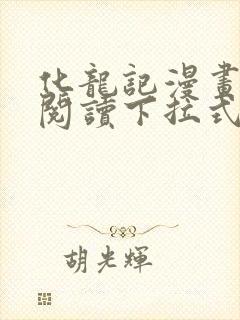 化龍記漫畫
閱讀下拉式
胡光輝